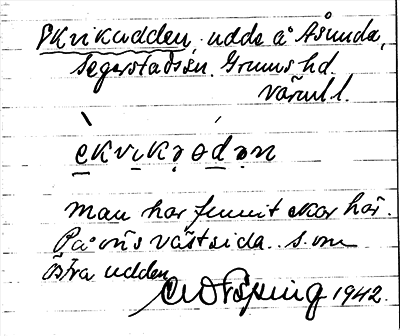 Ekvikudden, udde å Åsunda,
Segerstads sn. Grums hd.
Värml.
èkvikəodən
Man har funnit ekar här.
På öns västsida. s. om
östra udden
1942.